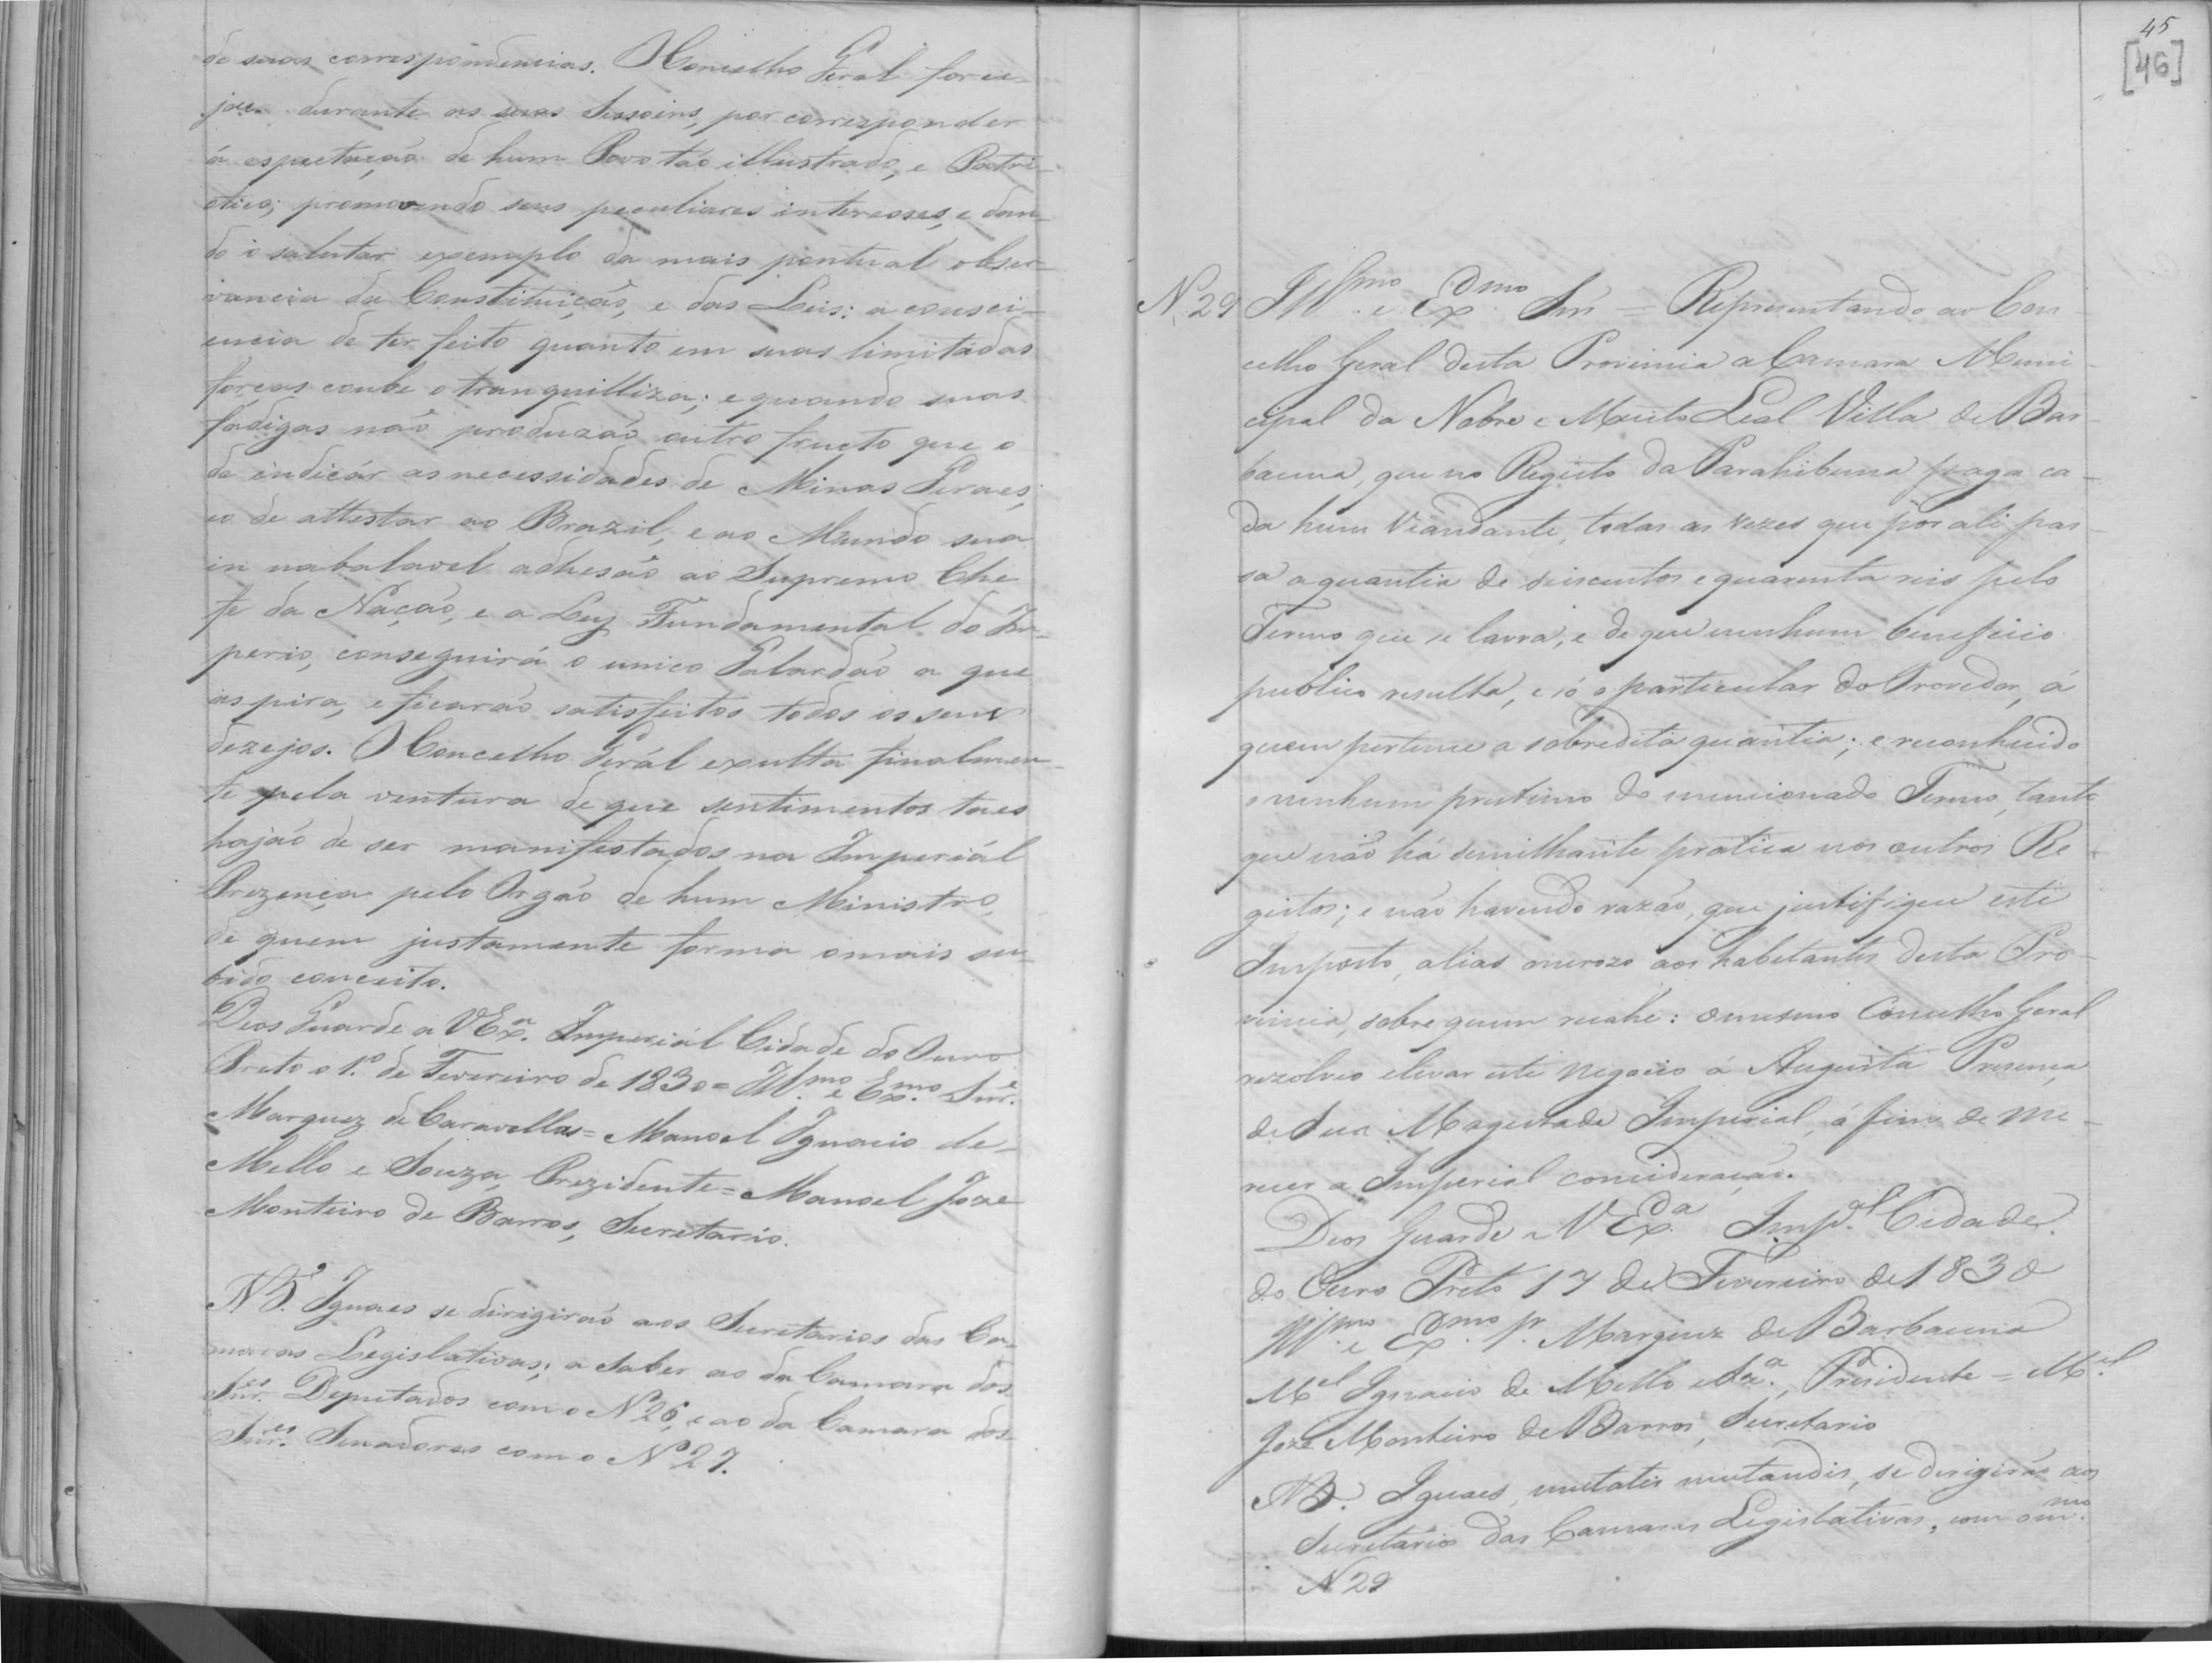 de suas correspondencias. O Concelho Geral force-
jou durante as suas Sessoens, por corresponder
á espectação de hum Povo tão illustrado, e Patri-
otico; promovendo seus peculiares interesses, e dan-
do o salutar exemplo da mais pontual obser-
vancia da Constituição, e das Leis: a consci-
encia de ter feito quanto em suas limitadas
forças coube o tranquilliza; e quando suas
fadigas não produzão outro fructo que o
de indicár as necessidades de Minas Geraes,
eo de attestar ao Brazil, e ao Mundo sua
in nabalavel adhesão ao Supremo Che
fe da Nação, e a Ley Fundamental do Im-
perio, conseguirá o unico Galardão a que
aspira, e ficarão satisfeitos todos os seus
dezejos. O Concelho Gerál exulta finalmen-
te pela ventura de que sentimentos taes
hajão de ser manifestados na Imperiál
Prezença pelo Orgão de hum Ministro,
de quem justamente forma o mais su-
bido conceito.
Deos Guarde a VEx.ª Imperiál Cidade do Ouro
Preto o 1.º de Fevereiro de 1830 = Ill.mo e Ex.mo Snr.e
Marquez de Caravellas = Manoel Ignacio de
Mello e Souza, Prezidente = Manoel Joze
Monteiro de Barros, Secretario.
NB. Iguaes se dirigirão aos Secretarios das Ca-
maras Legislativas; a saber ao da Camara dos
Snr.es Deputados com o Nº 26, e ao da Camara dos
Snr.es Senadores com o Nº 27.
45
[46]
N. 29 Ill.mo e Ex.mo Snr = Representando ao Con
celho Geral desta Provincia a Camara Muni-
cipal da Nobre e Muito Leal Villa de Bar-
bacena, que no Registo da Parahibuna paga ca-
da hum Viandante, todas as vezes que por ali pas
sa a quantia de seiscentos e quarenta reis pelo
Termo que se lavra, e de que nenhum beneficio
publico resulta, e só o particular do Provedor, á
quem pertence a sobredita quantia; e reconhecido
o nenhum prestimo do mencionado Termo, tanto
que não há semilhante pratica nos outros Re-
gistos; e não havendo razão, que justifique este
Imposto, alias onerozo aos habitantes desta Pro-
vincia, sobre quem recahe: o mesmo Concelho Geral
rezolveo elevar este negocio á Augusta Presença
de Sua Magestade Imperial, á fim de me-
recer a Imperial consideração.
Deos Guarde a V Ex.ª Imp.al Cidade
do Ouro Preto 17 de Fevereiro de 1830
Ill.mo e Ex.mo Sr. Marquez de Barbacena
M.el Ignacio de Mello e Sz.ª, Presidente = M.el
Jozé Monteiro de Barros, Secretario
NB. Iguaes, mutatis mutandis, se dirigirão aos
Secretarios das Camaras Legislativas, com o m.mo
N 29